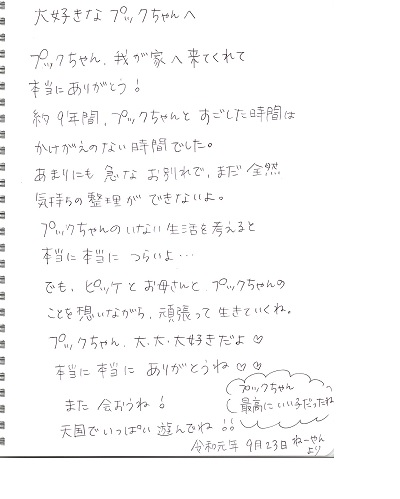 大好きなプックちゃんへ
プックちゃん、我が家へ来てくれて
本当にありがとう！
約9年間、プックちゃんとすごした時間は
かけがえのない時間でした。
あまりにも急なお別れで、まだ全然
気持ちの整理ができないよ。
プックちゃんのいない生活を考えると
本当に本当につらいよ…
でも、ピッケとお母さんと、プックちゃんの
ことを想いながら、頑張って生きていくね。
プックちゃん、大・大・大好きだよ♡
本当に本当にありがとうね♡♡
プックちゃん
最高にいい子だったね
また会おうね！
天国でいっぱい遊んでね!!
令和元年 9月23日 ねーやん
より